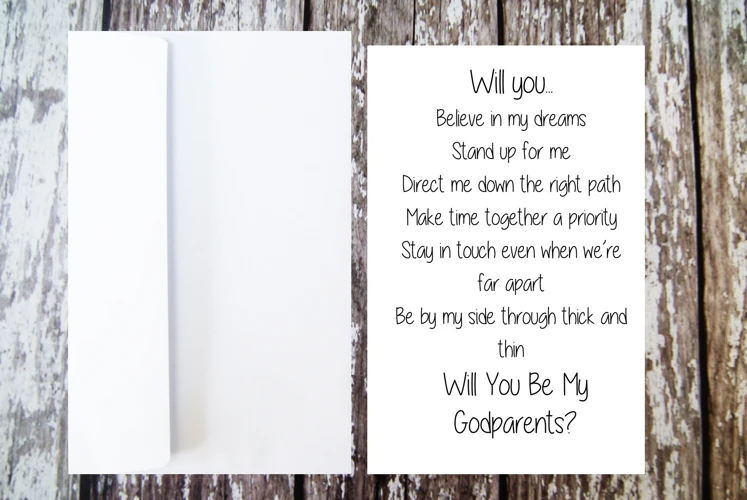 Will you...
Believe in my dreams
Stand up for me
Direct me down the right path
Make time together a priority
Stay in touch even when we're
far apart
Be by my side through thick and
thin
Will You Be My
Godparents?